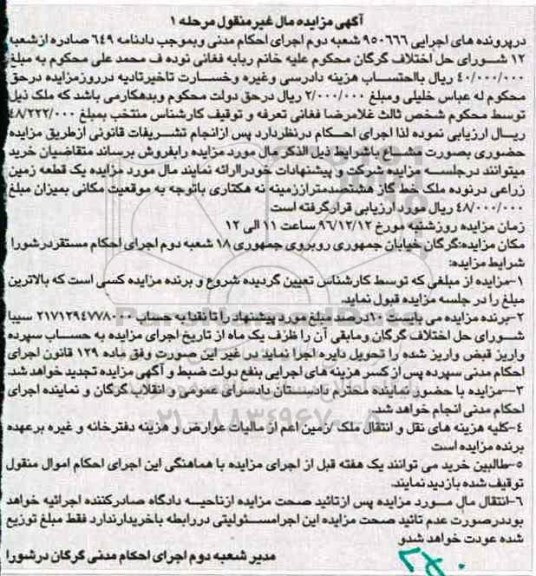 آگهی مزایده مال غیرمنقول مرحله ۱
درپرونده های اجرایی ۹۵۰۶۶۶ شعبه دوم اجرای احکام مدنی وبموجب دادنامه ۶۴۹ صادره ازشعبه
۱۲ شورای حل اختلاف گرگان محکوم علیه خانم ربابه فغانی نوده ف محمد علی محکوم به مبلغ
۴۰/۰۰۰/۰۰۰ ریال بااحتساب هزینه دادرسی وغیره وخسارت تاخیرتادیه درروزمزایده درحق
محکوم له عباس خلیلی ومبلغ ۲/۰۰۰/۰۰۰ ریال درحق دولت محکوم وبدهکارمی باشد که ملک ذیل
توسط محکوم شخص ثالث غلامرضا فغانی تعرفه و توقیف کارشناس منتخب بمبلغ ۴۸/۲۲۲/۰۰۰
ریال ارزیابی نموده لذا اجرای احکام درنظردارد پس ازانجام تشریفات قانونی ازطریق مزایده
حضوری بصورت نقدی باشرایط ذیل الذکر مال مورد مزایده رابفروش برساند متقاضیان خرید
میتوانند درجلسه مزایده شرکت و پیشنهادات خودراارائه نمایند مال مورد مزایده یک قطعه زمین
زراعی درنوده ملک خط گاز هشتصدمتراززمینه نه هکتاری باتوجه به موقعیت مکانی بمیزان مبلغ
۴۸/۰۰۰/۰۰۰ ریال مورد ارزیابی قرارگرفته است
زمان مزایده روزشنبه مورخ ۹۶/۱۲/۱۲ ساعت ۱۱ الی ۱۲
مکان مزایده:گرگان خیابان جمهوری روبروی جمهوری ۱۸ شعبه دوم اجرای احکام مستقردرشورا
شرایط مزایده:
۱-مزایده از مبلغی که توسط کارشناس تعیین گردیده شروع و برنده مزایده کسی است که بالاترین
مبلغ را در جلسه مزایده قبول نماید.
۲-برنده مزایده می بایست ۱۰درصد مبلغ مورد پیشنهاد را تا نقدا به حساب ۲۱۷۱۲۹۴۷۷۸۰۰۰ سیبا
شورای حل اختلاف گرگان ومابقی آن را ظرف یک ماه از تاریخ اجرای مزایده به حساب سپرده
واریز قبض واریز شده را تحویل دایره اجرا نماید در غیر این صورت وفق ماده ۱۲۹ قانون اجرای
احکام مدنی سپرده پس از کسر هزینه های اجرایی بنفع دولت ضبط و آگهی مزایده تجدید خواهد شد
۳-مزایده با حضور نماینده محترم دادستان دادسرای عمومی و انقلاب گرگان و نماینده اجرای
احکام مدنی انجام خواهد شد.
۴-کلیه هزینه های نقل و انتقال ملک /زمین اعم از مالیات عوارض و هزینه دفترخانه و غیره برعهده
برنده مزایده است
۵-طالبین خرید می توانند یک هفته قبل از اجرای مزایده با هماهنگی این اجرای احکام اموال منقول
توقیف شده بازدید نمایند.
۶-انتقال مال مورد مزایده پس ازتائید صحت مزایده ازناحیه دادگاه صادرکننده اجرائیه خواهد
بوددرصورت عدم تائید صحت مزایده این اجرامسئولیتی دررابطه باخریدارندارد فقط مبلغ توزیع
شده عودت خواهد شدو
مدیر شعبه دوم اجرای احکام مدنی گرگان درشورا